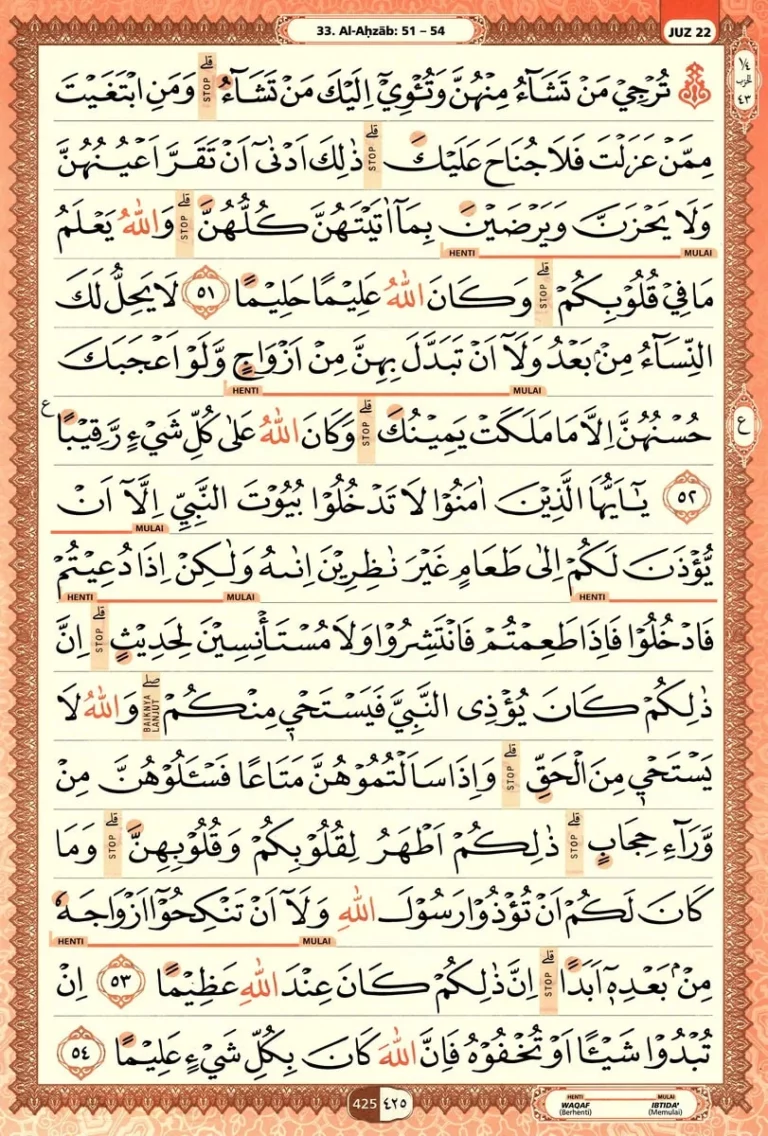 33. Al-Aḥzāb: 51 – 54
JUZ 22
۞ تُرْجِيْ مَنْ تَشَاۤءُ مِنْهُنَّ وَتُـْٔوِيْٓ اِلَيْكَ مَنْ تَشَاۤءُۗ STOP وَمَنِ ابْتَغَيْتَ
¼ الحزب ٤٣
مِمَّنْ عَزَلْتَ فَلَا جُنَاحَ عَلَيْكَۗ STOP ذٰلِكَ اَدْنٰٓى اَنْ تَقَرَّ اَعْيُنُهُنَّ
وَلَا يَحْزَنَّ وَيَرْضَيْنَ بِمَآ اٰتَيْتَهُنَّ كُلُّهُنَّۗ STOP وَاللّٰهُ يَعْلَمُ
MULAI HENTI
مَا فِيْ قُلُوْبِكُمْۗ STOP وَكَانَ اللّٰهُ عَلِيْمًا حَلِيْمًا ٥١ لَا يَحِلُّ لَكَ
النِّسَاۤءُ مِنْۢ بَعْدُ وَلَآ اَنْ تَبَدَّلَ بِهِنَّ مِنْ اَزْوَاجٍ وَّلَوْ اَعْجَبَكَ
MULAI HENTI
حُسْنُهُنَّ اِلَّا مَا مَلَكَتْ يَمِيْنُكَۗ STOP وَكَانَ اللّٰهُ عَلٰى كُلِّ شَيْءٍ رَّقِيْبًا ع
ع
٥٢ يٰٓاَيُّهَا الَّذِيْنَ اٰمَنُوْا لَا تَدْخُلُوْا بُيُوْتَ النَّبِيِّ اِلَّآ اَنْ
MULAI
يُّؤْذَنَ لَكُمْ اِلٰى طَعَامٍ غَيْرَ نٰظِرِيْنَ اِنٰىهُ وَلٰكِنْ اِذَا دُعِيْتُمْ
HENTI MULAI HENTI
فَادْخُلُوْا فَاِذَا طَعِمْتُمْ فَانْتَشِرُوْا وَلَا مُسْتَأْنِسِيْنَ لِحَدِيْثٍۗ STOP اِنَّ
ذٰلِكُمْ كَانَ يُؤْذِى النَّبِيَّ فَيَسْتَحْيٖ مِنْكُمْۖ BAIKNYA LANJUT وَاللّٰهُ لَا
يَسْتَحْيٖ مِنَ الْحَقِّۗ STOP وَاِذَا سَاَلْتُمُوْهُنَّ مَتَاعًا فَسْـَٔلُوْهُنَّ مِنْ
وَّرَاۤءِ حِجَابٍۗ STOP ذٰلِكُمْ اَطْهَرُ لِقُلُوْبِكُمْ وَقُلُوْبِهِنَّۗ STOP وَمَا
كَانَ لَكُمْ اَنْ تُؤْذُوْا رَسُوْلَ اللّٰهِ وَلَآ اَنْ تَنْكِحُوْٓا اَزْوَاجَهٗ
MULAI HENTI
مِنْۢ بَعْدِهٖٓ اَبَدًاۗ STOP اِنَّ ذٰلِكُمْ كَانَ عِنْدَ اللّٰهِ عَظِيْمًا ٥٣ اِنْ
تُبْدُوْا شَيْـًٔا اَوْ تُخْفُوْهُ فَاِنَّ اللّٰهَ كَانَ بِكُلِّ شَيْءٍ عَلِيْمًا ٥٤
425 ٤٢٥
HENTI MULAI
WAQAF IBTIDA'
(Berhenti) (Memulai)